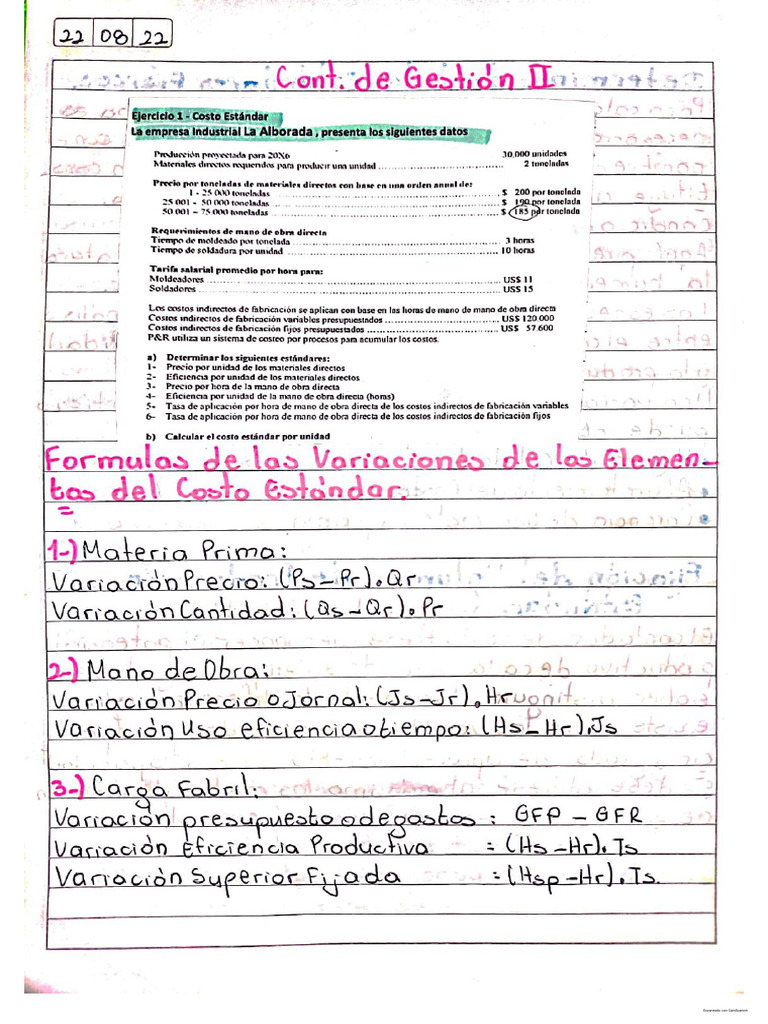 22 08 22
Cont. de Gestión II
Ejercicio 1 - Costo Estándar
La empresa Industrial La Alborada , presenta los siguientes datos
Producción proyectada para 20X6 30.000 unidades
Materiales directos requeridos para producir una unidad .......................... 2 toneladas
Precio por toneladas de materiales directos con base en una orden anual de:
1 - 25 000 toneladas .......................... $ 200 por tonelada
25 001 - 50 000 toneladas .......................... $ 190 por tonelada
50 001 – 75 000 toneladas .......................... $ 185 por tonelada
Requerimientos de mano de obra directa
Tiempo de moldeado por tonelada .......................... 3 horas
Tiempo de soldadura por unidad .......................... 10 horas
Tarifa salarial promedio por hora para:
Moldeadores .......................... US$ 11
Soldadores .......................... US$ 15
Los costos indirectos de fabricación se aplican con base en las horas de mano de mano de obra directa
Costos indirectos de fabricación variables presupuestados .......................... US$ 120.000
Costos indirectos de fabricación fijos presupuestados .......................... US$ 57.600
P&R utiliza un sistema de costeo por procesos para acumular los costos.
a) Determinar los siguientes estándares:
1- Precio por unidad de los materiales directos
2- Eficiencia por unidad de los materiales directos
3- Precio por hora de la mano de obra directa
4- Eficiencia por unidad de la mano de obra directa (horas)
5- Tasa de aplicación por hora de mano de obra directa de los costos indirectos de fabricación variables
6- Tasa de aplicación por hora de mano de obra directa de los costos indirectos de fabricación fijos
b) Calcular el costo estándar por unidad
Formulas de las Variaciones de los Elemen-
tos del Costo Estándar.
1-) Materia Prima:
Variación Precio: (Ps - Pr). Qr
Variación Cantidad: (Qs - Qr). Pr
2-) Mano de Obra:
Variación Precio o Jornal: (Js - Jr). Hr
Variación Uso eficiencia o tiempo: (Hs - Hr). Js
3-) Carga Fabril:
Variación presupuesto o de gastos : GFP - GFR
Variación Eficiencia Productiva = (Hs - Hr). Ts
Variación Superior Fijada = (Hsp - Hr). Ts.